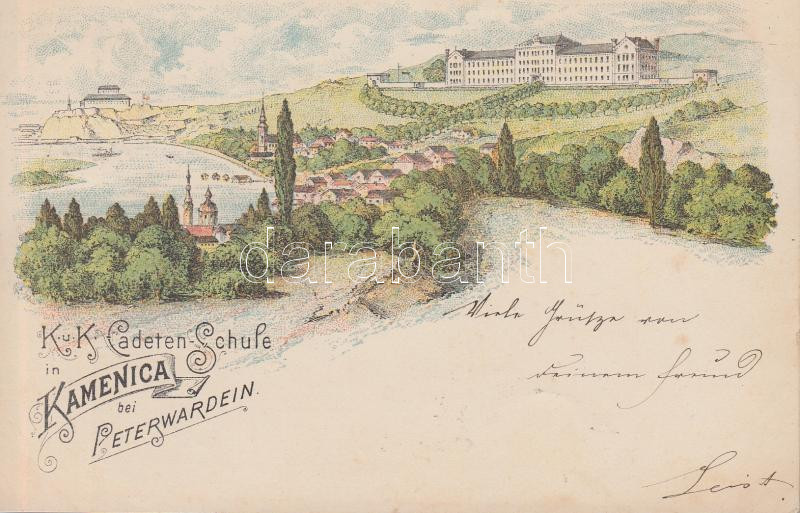 darabanth
K. u. K. Cadeten-Schule
in
KAMENICA
bei
PETERWARDEIN.
Viele Grüsze von
deinem Freund